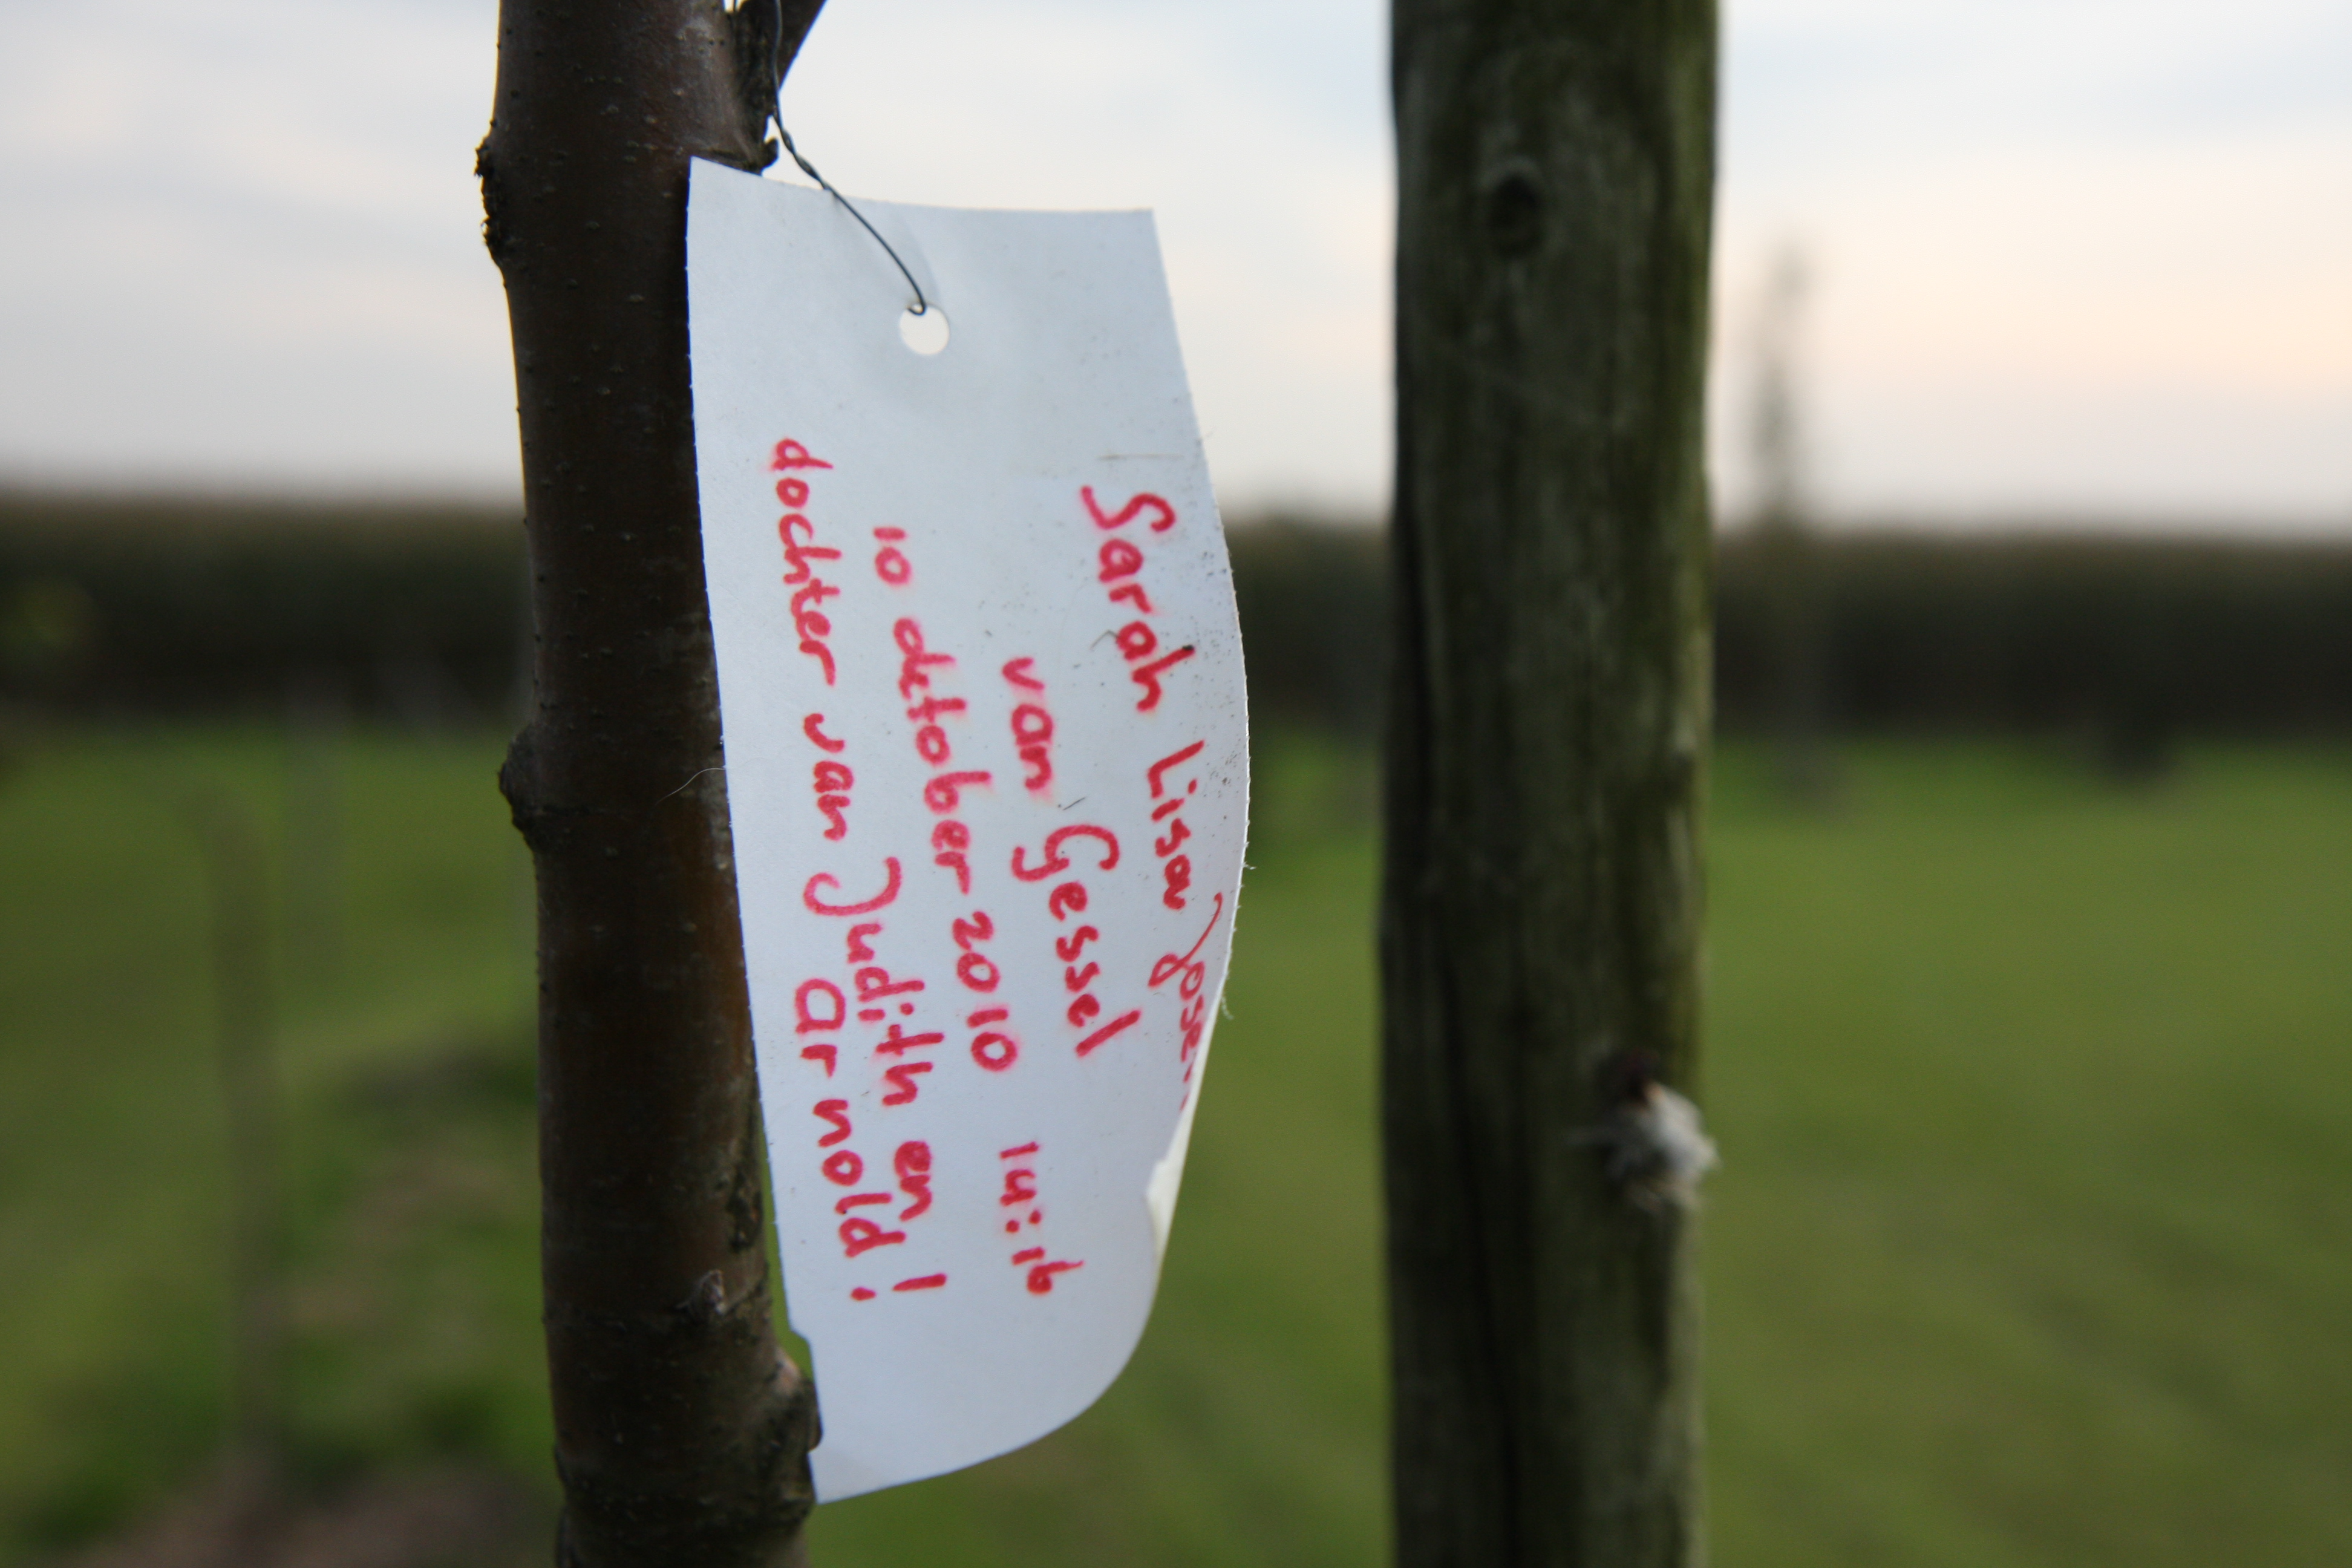 Sarah Lisa
van Gessel
10 oktober 2010 14:16
dochter van Judith en
Arnold!